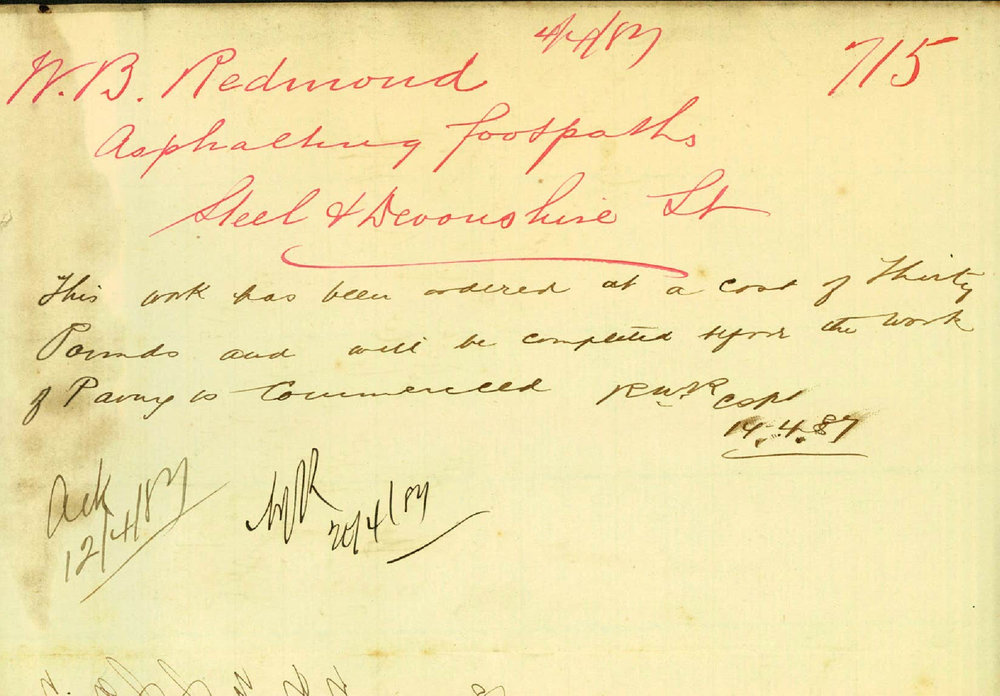 4/4/87
W. B. Redmond 715
Asphalting footpaths
Steel & Devonshire St
This work has been ordered at a cost of Thirty
Pounds and will be completed before the work
of Paving is Commenced
14.4.87
Ack
12/4/87
20/4/87